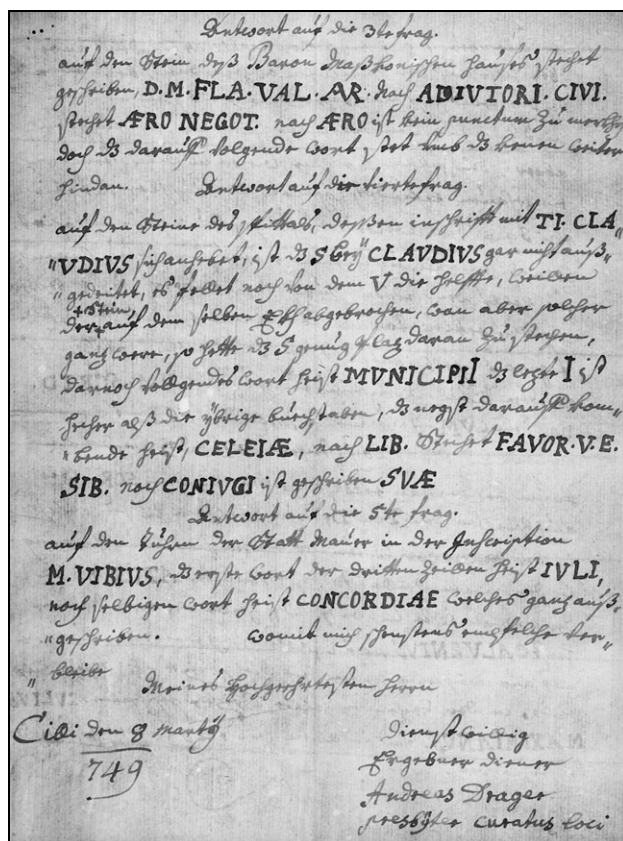 Antwort auf die 3te frag.
auf den Stein deß Baron Maßkonischen hauses stehet
geschriben, D.M. FLA. VAL. AR. nach ADIVTORI. CIVI.
stehet ÆRO NEGOT. nach ÆRO ist kein punctum zu merkhen
doch dz darauff volgende wort stet umb dz kenen weiter
hindan. Antwort auf die vierte frag.
auf den Steine des spittals, deßen inschrifft mit TI. CLA„
„VDIVS sich anhebet, ist dz S bey CLAVDIVS gar nicht auß„
„gedeitet, es fellet noch von dem V die helffte, weillen
der Stein auf dem selben Eckh abgebrochen, wan aber solcher
gantz were, so hette dz S genug platz daran zu stehen,
darnoch vollgendes wort heist MVNICIPII dz lezte I ist
hecher alß die ybrige buechstaben, dz negst darauff kom„
„bende heist, CELEIÆ, nach LIB. stehet FAVOR. V. E.
SIB. noch CONIVGI ist geschriben SVÆ
Antwort auf die 5te frag.
auf den Tuhrn der Statt Mauer in der Inscription
M. VIBIVS, dz erste wort der dritten Zeillen heist IVLI,
noch selbigen wort heist CONCORDIAE welches gantz auß„
„geschriben. womit mich schenstens empfelche ver„
„bleibe
Meines Hochgeehrtesten Herrn
Cilli den 8 Marty
749
dienstwillig
Ergebner diener
Andreas Drager
presbyter curatus loci